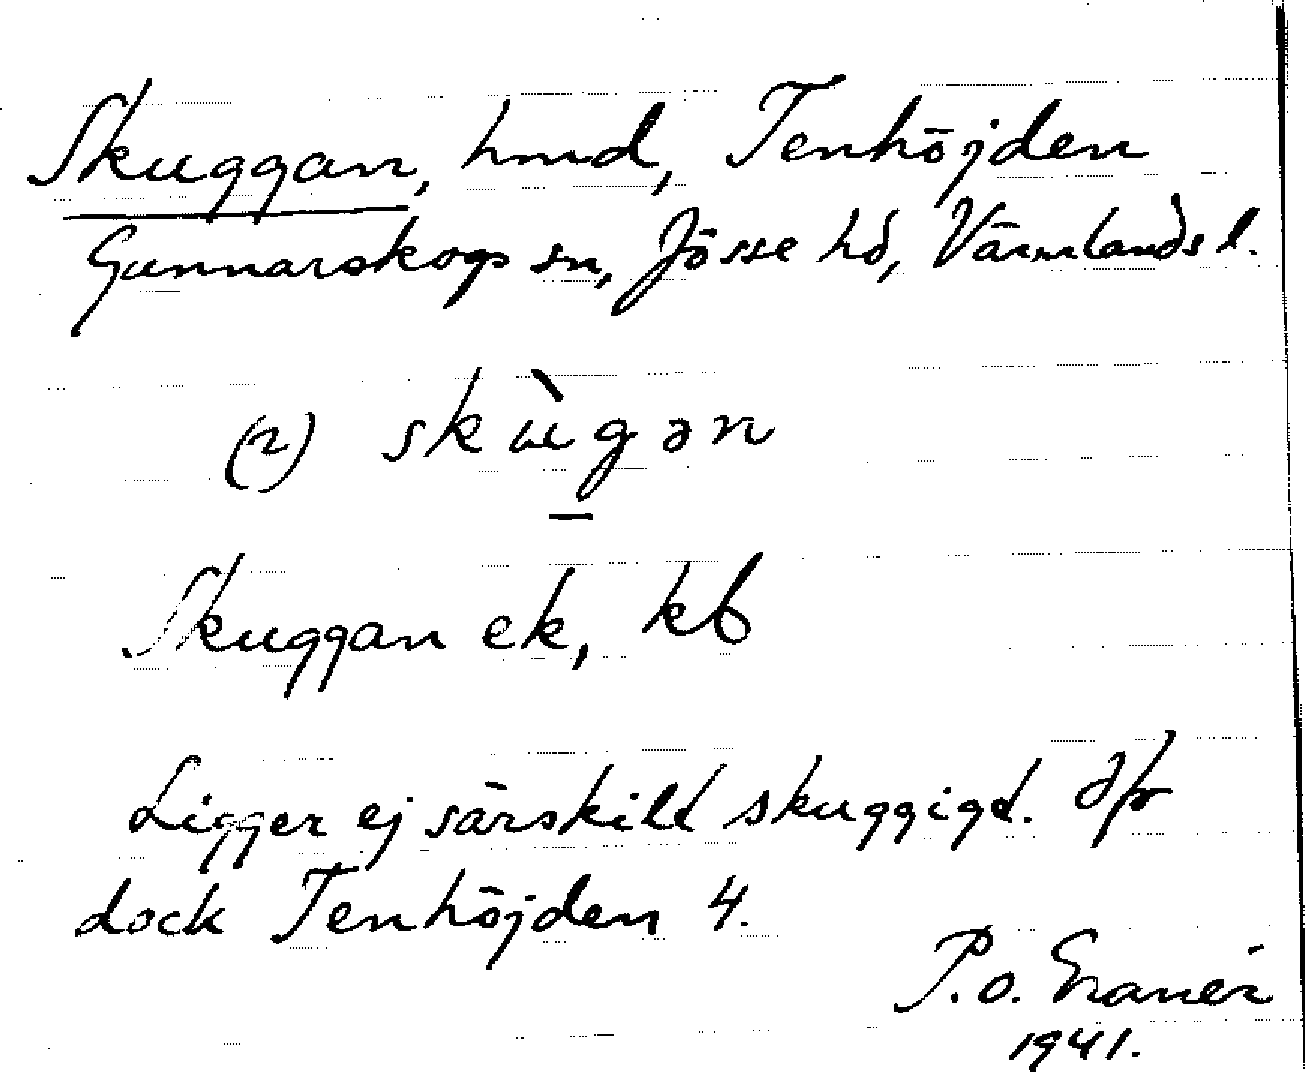 Skuggan, hmd, Tenhöjden
Gunnarskogs sn, Jösse hd, Värmlands l.
(2) skùgən
Skuggan ek, kb
Ligger ej särskild skuggigt. Jfr
dock Tenhöjden 4.
P.O. Granér
1941.